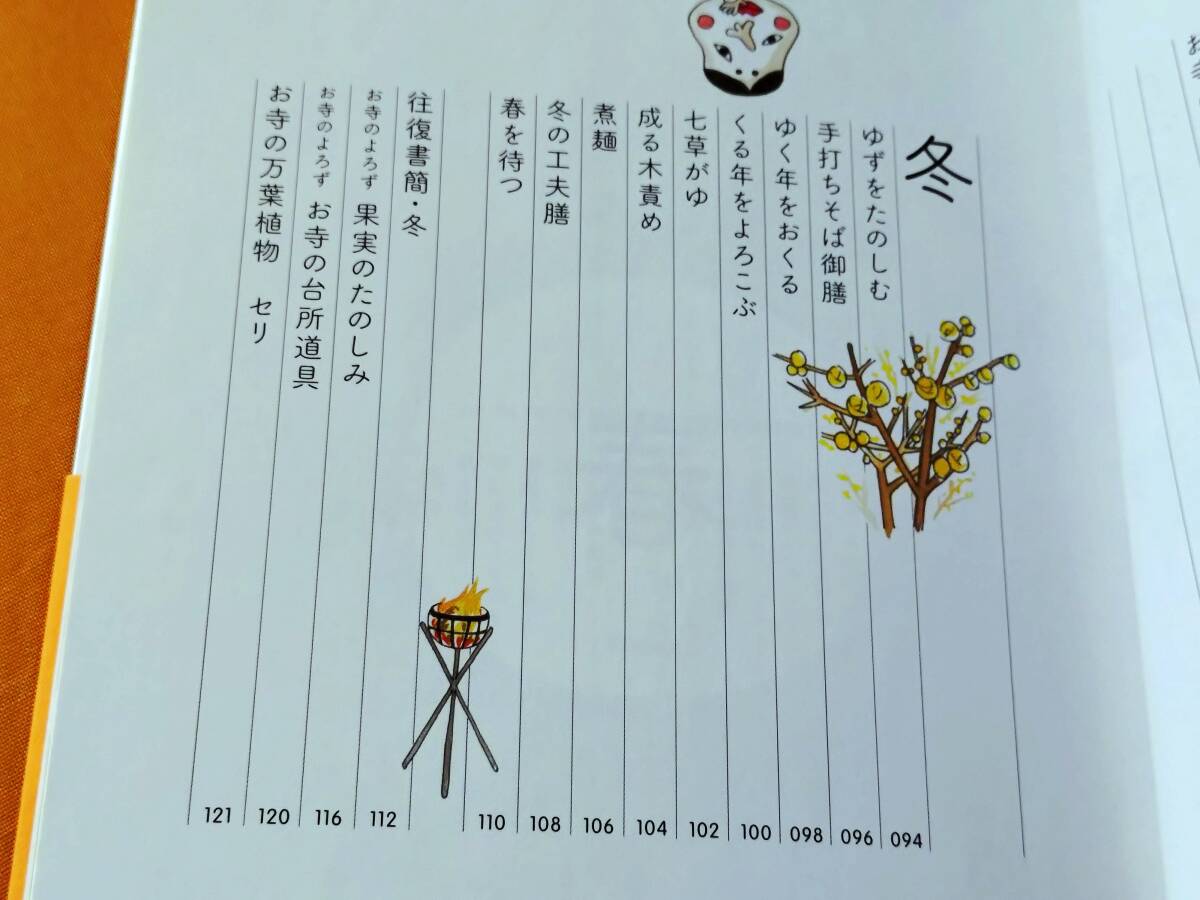 冬
ゆずをたのしむ 094
手打ちそば御膳 096
ゆく年をおくる 098
くる年をよろこぶ 100
七草がゆ 102
成る木責め 104
煮麺 106
冬の工夫膳 108
春を待つ 110
往復書簡・冬 112
お寺のよろず 果実のたのしみ 116
お寺のよろず お寺の台所道具 120
お寺の万葉植物 セリ 121